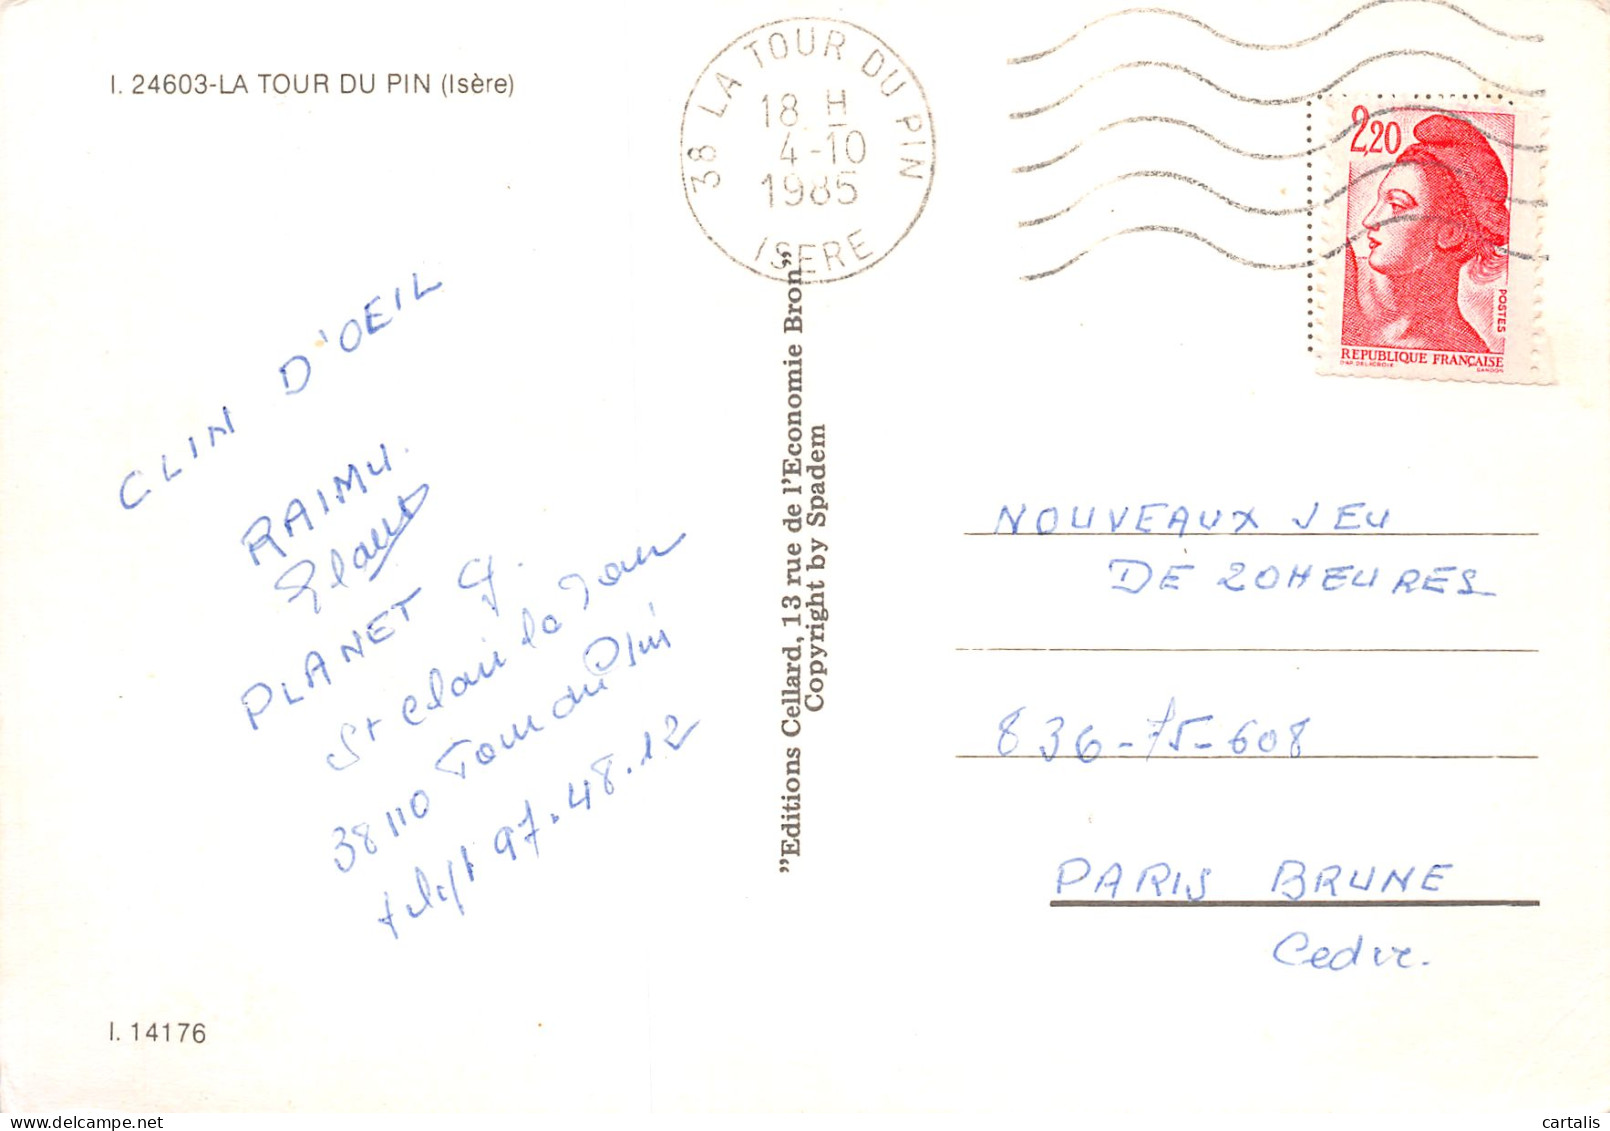 I. 24603-LA TOUR DU PIN (Isère)
38 LA TOUR DU PIN
18 H
4-10
1985
ISERE
2,20
POSTES
REPUBLIQUE FRANÇAISE
D'AP. DELACROIX GANDON
CLIN D'OEIL
RAIMU.
PLANET G.
St Clair la Tour
38110 Tour du Pin
97.48.12
"Editions Cellard, 13 rue de l'Economie Bron"
Copyright by Spadem
NOUVEAUX JEU
DE 20HEURES
836-75-608
PARIS BRUNE
I. 14176
delcampe.net
cartalis